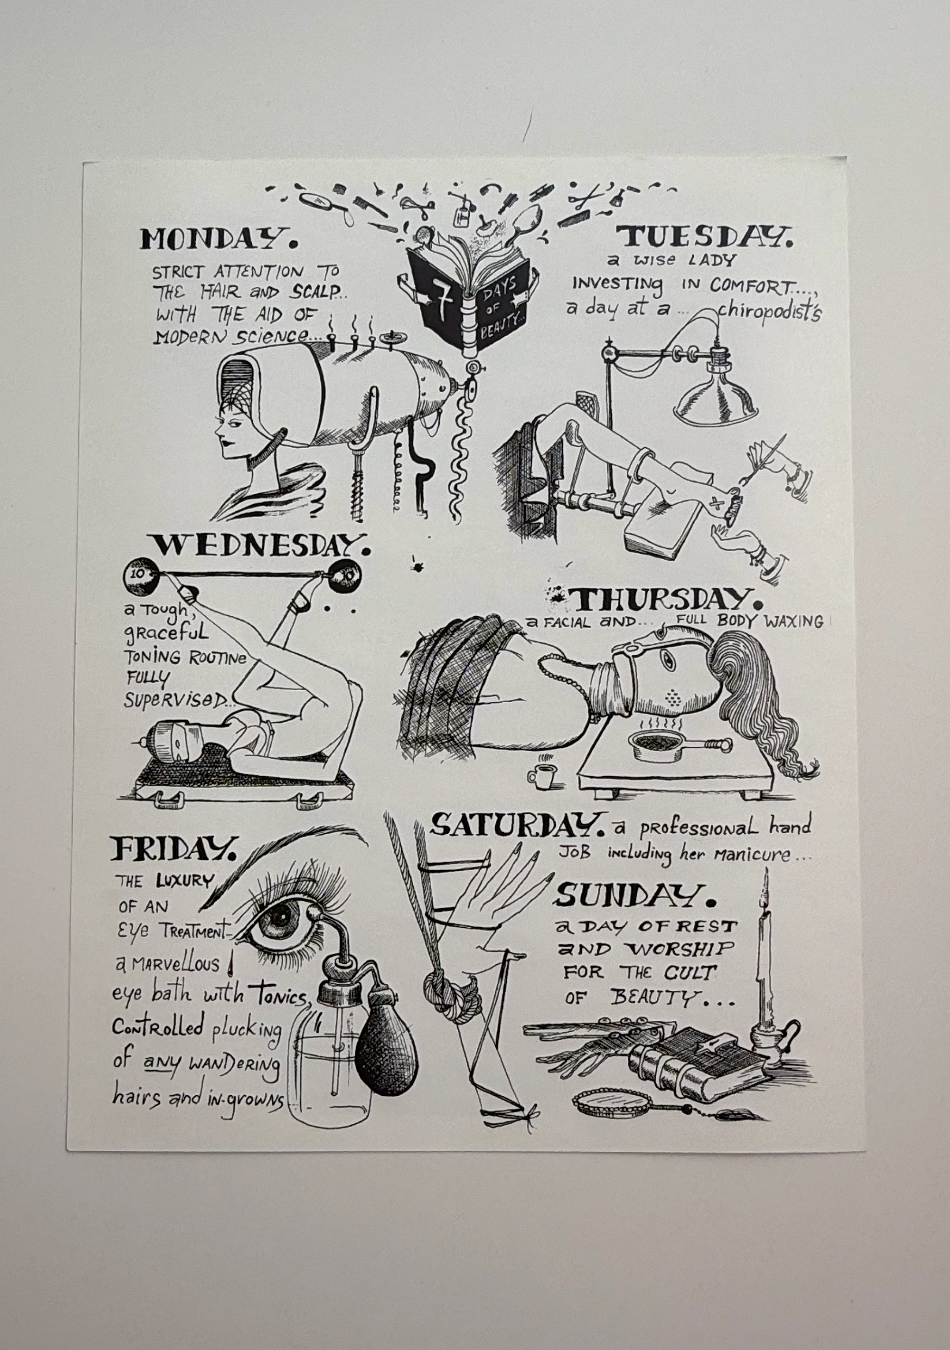 7 DAYS
OF
BEAUTY...
MONDAY.
STRICT ATTENTION TO
THE HAIR and SCALP..
WITH THE AID OF
MODERN science...
TUESDAY.
a wise LADY
INVESTING IN COMFORT....,
a day at a ... chiropodist's
WEDNESDAY.
10
a Tough,
graceful
TONING ROUTINE
FULLY
SUPERVISED...
THURSDAY.
a FACIAL and... FULL BODY WAXING
FRIDAY.
THE LUXURY
OF AN
Eye TREATMENT-
a MARVELLOUS
eye bath with Tonics,
Controlled plucking
of any WANDering
hairs and in-growns
SATURDAY. a professional hand
JOB including her Manicure...
SUNDAY.
a DAY OF REST
AND WORSHIP
FOR THE CULT
OF BEAUTY...